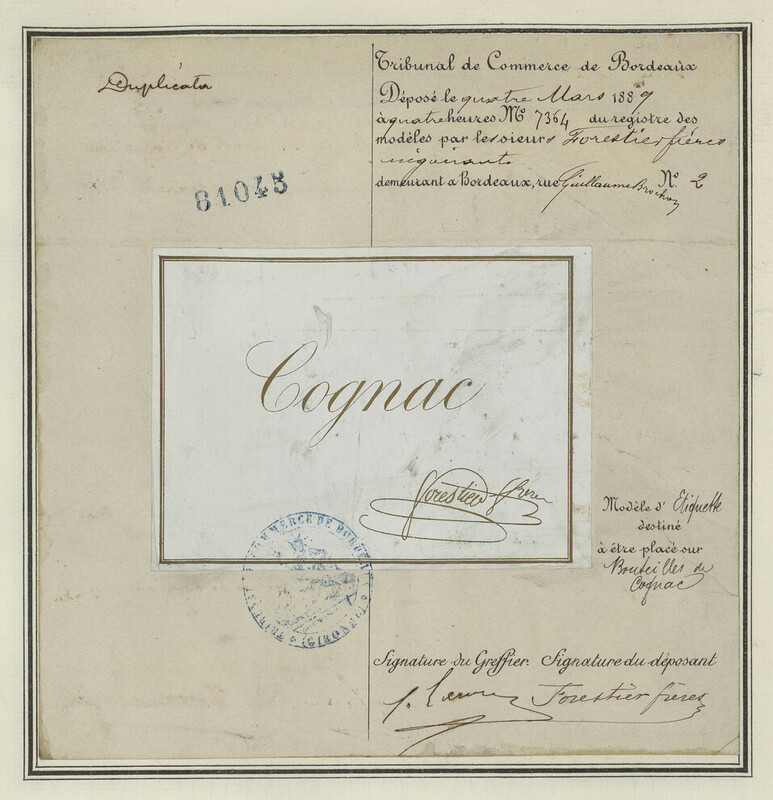 Duplicata
81043
Tribunal de Commerce de Bordeaux
Déposé le quatre Mars 1889
à quatre heures Nº 7364 du registre des
modèles par les sieurs Forestier frères
négociants
demeurant à Bordeaux, rue Guillaume Brochon Nº 2
Cognac
Forestier frères
Modèle d'Etiquette
destiné
à être placé sur
Bouteilles de
Cognac
TRIBUNAL DE COMMERCE DE BORDEAUX
(GIRONDE)
Signature du Greffier. Signature du déposant
Forestier frères